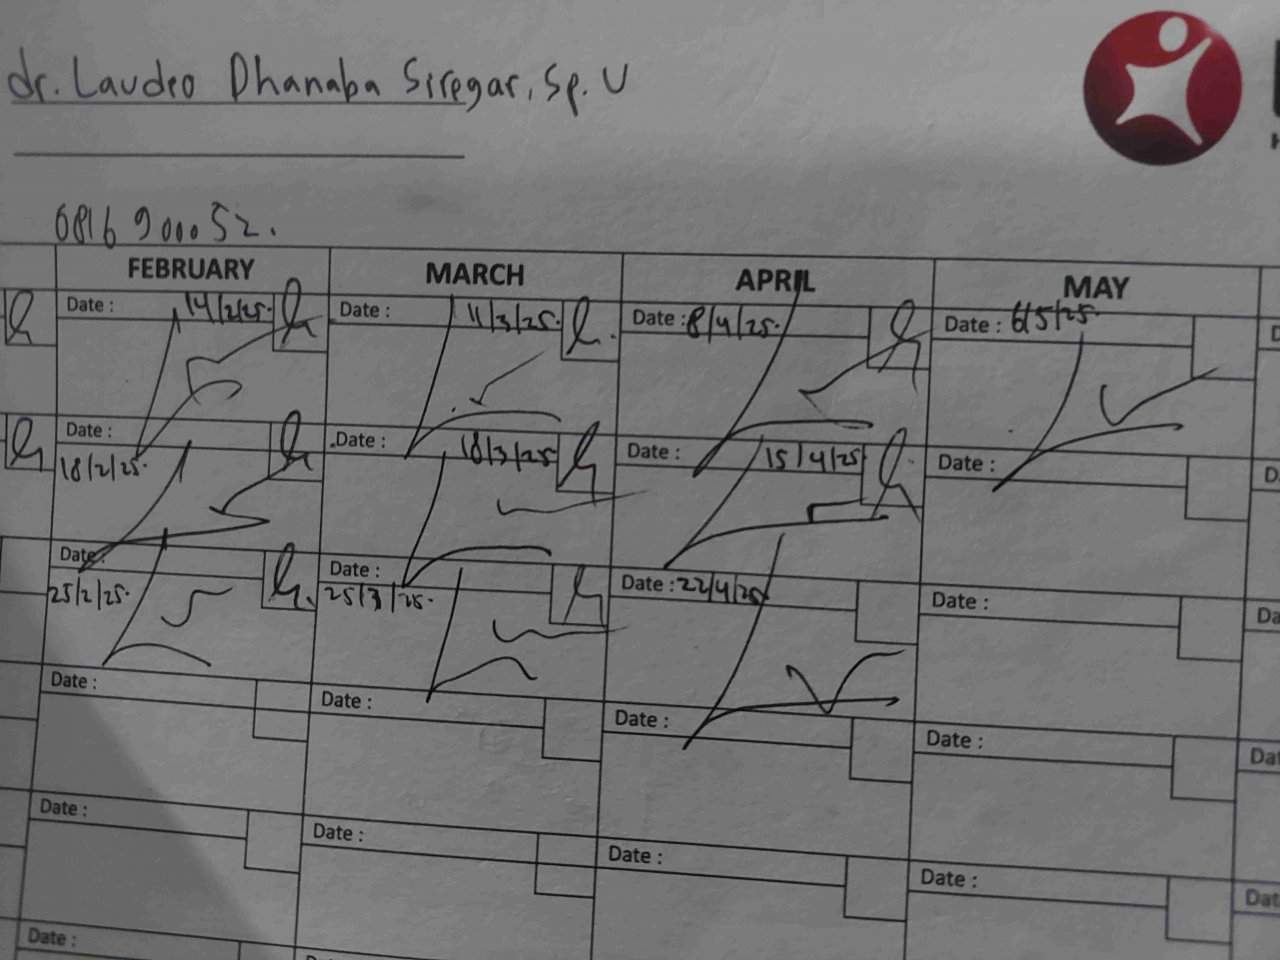 dr. Laudeo Dhanaba Siregar, Sp. U
0816 900052.
FEBRUARY MARCH APRIL MAY
Date : 14/2/25. Date : 11/3/25. Date : 8/4/25. Date : 6/5/25.
Date : 18/2/25. Date : 18/3/25 Date : 15/4/25 Date :
Date : 25/2/25. Date : 25/3/25. Date : 22/4/25 Date :
Date : Date : Date : Date :
Date : Date : Date : Date :
Date :